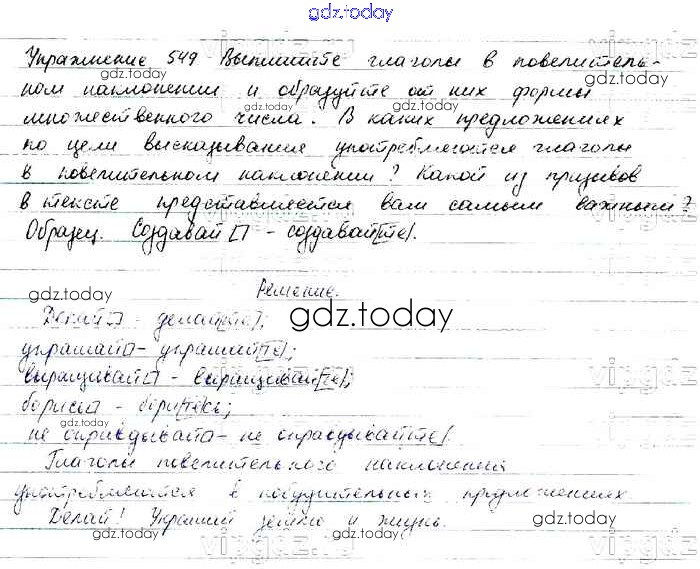 gdz.today
Упражнение 549 Выпишите глаголы в повелитель-
gdz.today
ном наклонении и образуйте от них формы
gdz.today
множественного числа. В каких предложениях
по цели высказывания употребляются глаголы
в повелительном наклонении? Какой из призывов
в тексте представляется вам самым важным?
Образец. Создавай - создавай[те].
Решение.
gdz.today
Делай - делай[те];
gdz.today
украшай - украшай[те];
выращивай - выращивай[те];
борись - бори[те]сь;
не оправдывай - не оправдывай[те].
Глаголы повелительного наклонения
употребляются в побудительных предложениях.
Делай! Украшай землю и жизнь.
gdz.today
gdz.today